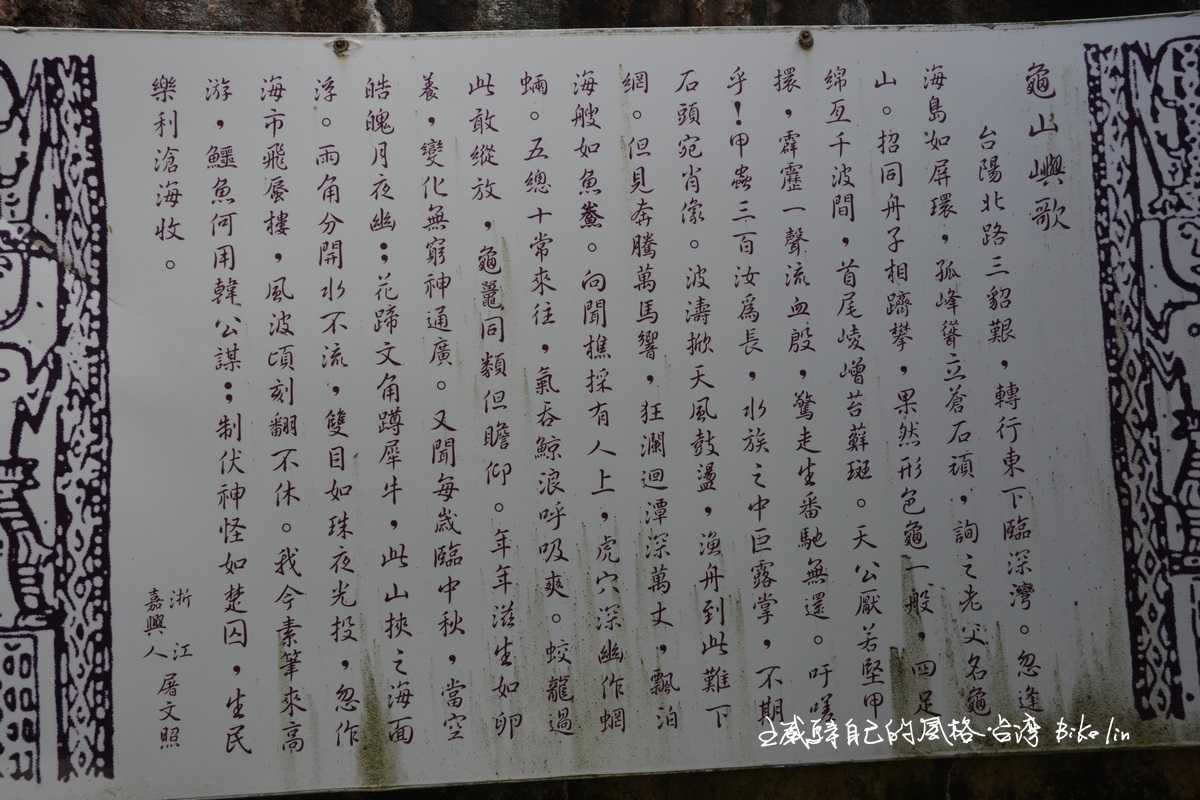 龜山嶼歌
台陽北路三貂艱，轉行東下臨深灣。忽逢
海島如屏環，孤峰聳立蒼石頑，詢之老父名龜
山。招同舟子相躋攀，果然形色龜一般，四足
綿亙千波間，首尾崚嶒苔蘚斑。天公厭若堅甲
擐，霹靂一聲流血殷，驚走生番馳無還。吁嗟
乎！甲蟲三百汝為長，水族之中巨露掌，不期
石頭宛肖像。波濤掀天風鼓盪，漁舟到此難下
網。但見奔騰萬馬響，狂瀾迴潭深萬丈，飄泊
海艘如魚鯗。向聞樵採有人上，虎穴深幽作蝄
蜽。五總十常來往，氣吞鯨浪呼吸爽。蛟龍過
此敢縱放，龜鼉同類但瞻仰。年年滋生如卵
養，變化無窮神通廣。又聞每歲臨中秋，當空
皓魄月夜幽；花蹄文角蹲犀牛，此山挾之海面
浮。兩角分開水不流，雙目如珠夜光投，忽作
海市飛蜃樓，風波頃刻翻不休。我今素筆來高
游，鱷魚何用韓公謀；制伏神怪如楚囚，生民
樂利滄海收。
浙江
嘉興人 屠文照
自己的風格.台灣 Biko lin